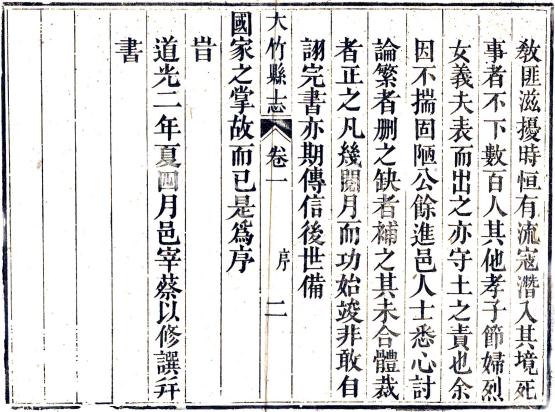 敎匪滋擾時恒有流寇潛入其境死
事者不下數百人其他孝子節婦烈
女義夫表而出之亦守土之責也余
因不揣固陋公餘進邑人士悉心討
論繁者刪之缺者補之其未合體裁
者正之凡幾閱月而功始竣非敢自
詡完書亦期傳信後世備
大竹縣志 卷一 序 二
國家之掌故而已是爲序
旹
道光二年夏四月邑宰蔡以修譔幷
書